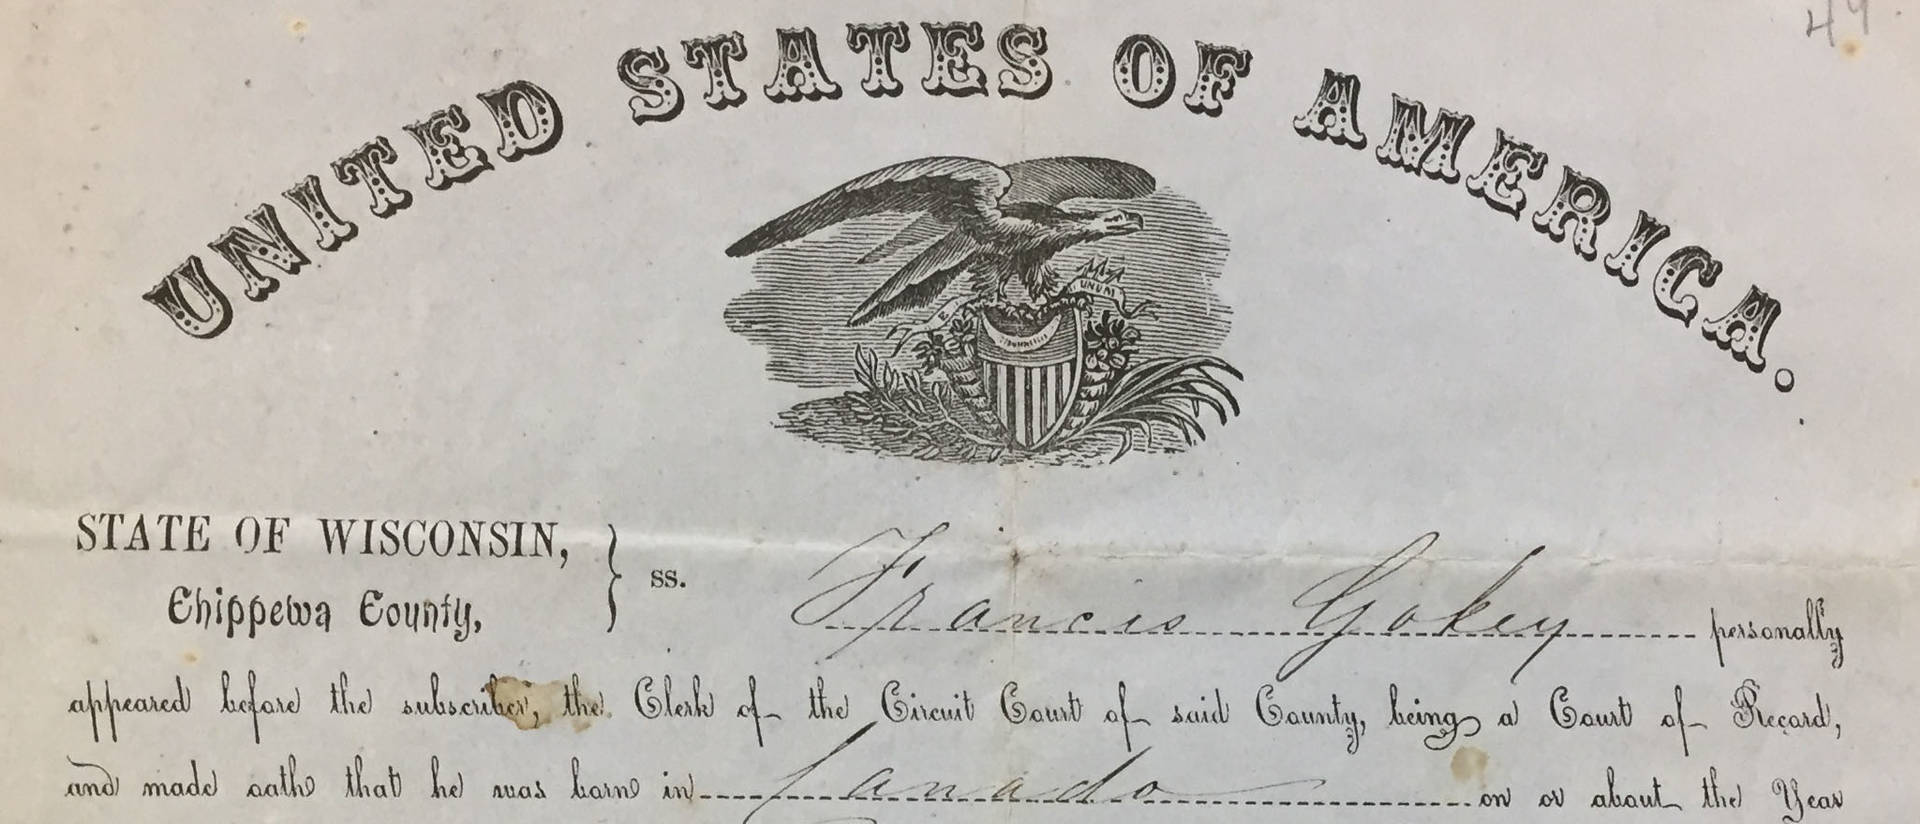 44
UNITED STATES OF AMERICA.
E UNUM
STATE OF WISCONSIN,
Chippewa County,
} ss. Francis Gokey personally
appeared before the subscriber, the Clerk of the Circuit Court of said County, being a Court of Record,
and made oath that he was born in Canada on or about the Year